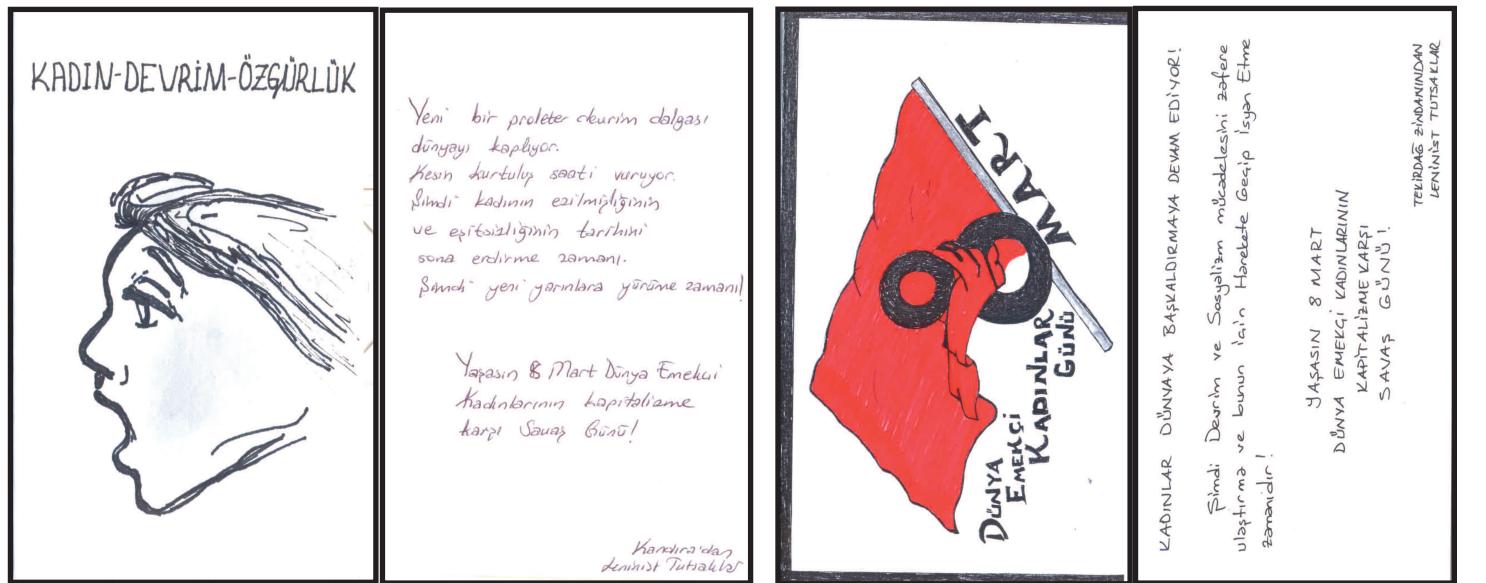 KADIN-DEVRİM-ÖZGÜRLÜK
Yeni bir proleter devrim dalgası
dünyayı kaplıyor.
Kesin kurtuluş saati vuruyor.
Şimdi kadının ezilmişliğinin
ve eşitsizliğinin tarihini
sona erdirme zamanı.
Şimdi yeni yarınlara yürüme zamanı!
Yaşasın 8 Mart Dünya Emekçi
Kadınlarının kapitalizme
karşı Savaş Günü!
Kandıra'dan
Leninist Tutsaklar
8 MART
DÜNYA
EMEKÇİ
KADINLAR
GÜNÜ
KADINLAR DÜNYAYA BAŞKALDIRMAYA DEVAM EDİYOR!
Şimdi Devrim ve Sosyalizm mücadelesini zafere
ulaştırma ve bunun için Harekete Geçip İsyan Etme
zamanıdır!
YAŞASIN 8 MART
DÜNYA EMEKÇİ KADINLARININ
KAPİTALİZME KARŞI
SAVAŞ GÜNÜ!
TEKİRDAĞ ZİNDANINDAN
LENİNİST TUTSAKLAR